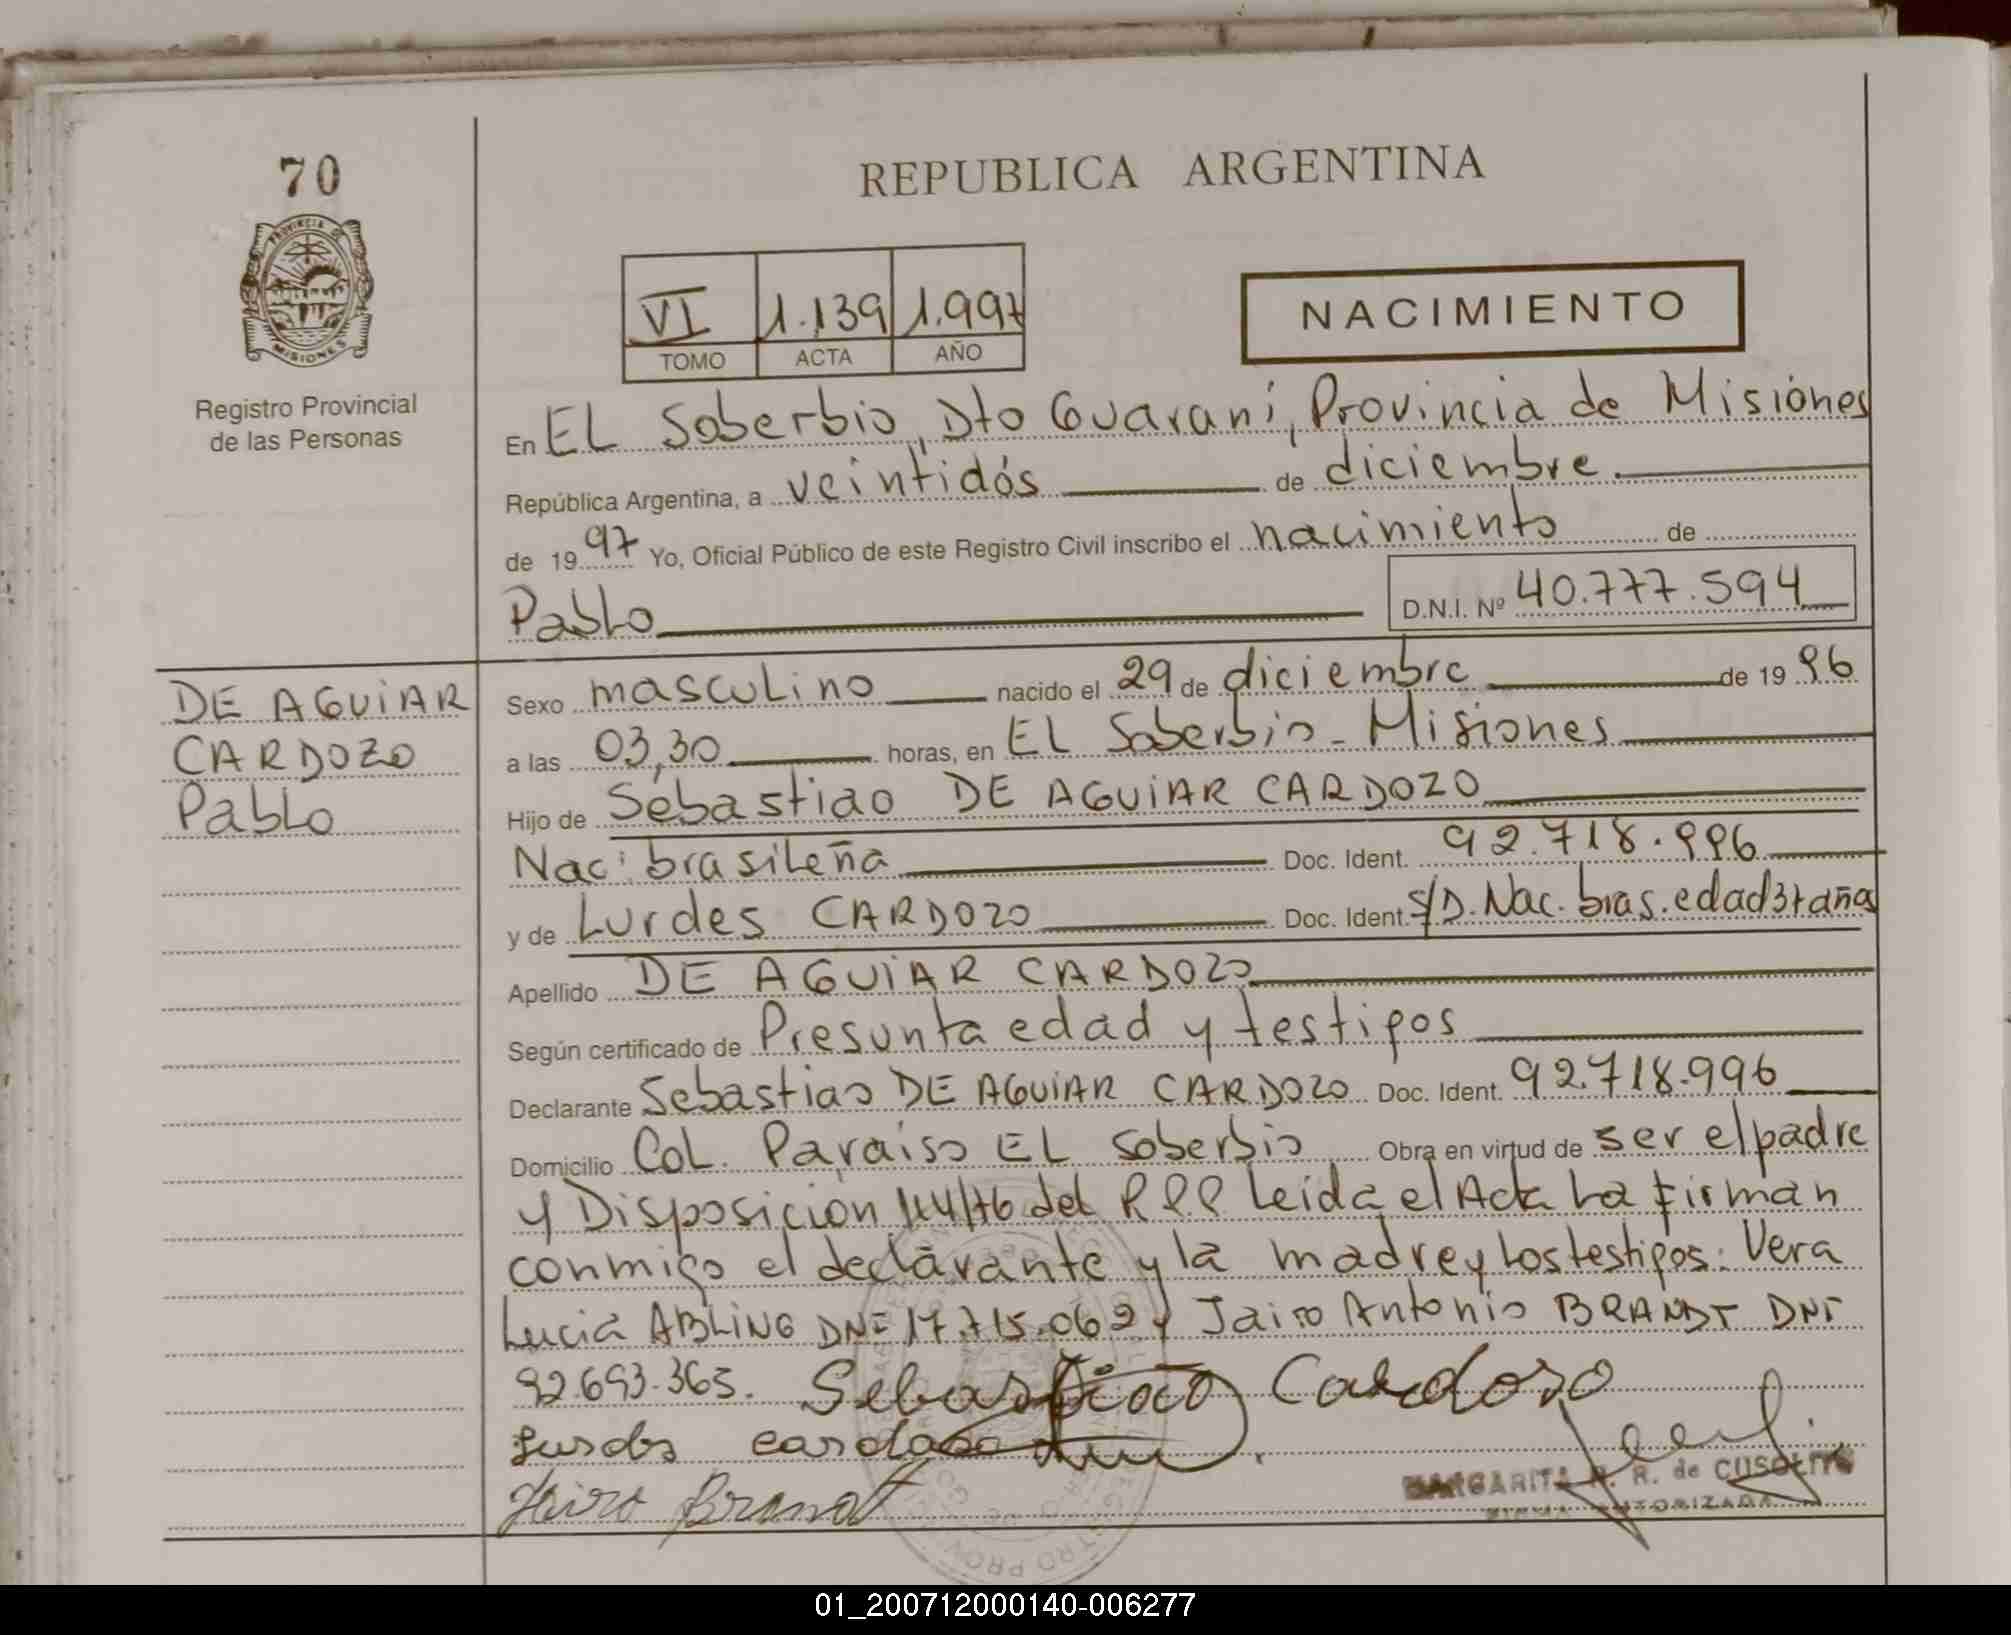 70
PROVINCIA DE
MISIONES
Registro Provincial
de las Personas
REPUBLICA ARGENTINA
VI 1.139 1.997
TOMO ACTA AÑO
NACIMIENTO
En EL Soberbio, Dto Guaraní, Provincia de Misiones
República Argentina, a veintidós de diciembre
de 1997 Yo, Oficial Público de este Registro Civil inscribo el nacimiento de
Pablo D.N.I. Nº 40.777.594
DE AGUIAR
CARDOZO
Pablo
Sexo masculino nacido el 29 de diciembre de 1996
a las 03,30 horas, en EL Soberbio - Misiones
Hijo de Sebastiao DE AGUIAR CARDOZO
Nac: brasileña Doc. Ident. 92.718.996
y de Lurdes CARDOZO Doc. Ident. S/D. Nac. bras. edad 37 años
Apellido DE AGUIAR CARDOZO
Según certificado de Presunta edad y testigos
Declarante Sebastiao DE AGUIAR CARDOZO Doc. Ident. 92.718.996
Domicilio Col. Paraiso EL Soberbio Obra en virtud de ser el padre
y Disposición 144/76 del RPP Leida el Acta La firman
conmigo el declarante y la madre y Los testigos: Vera
Lucia ABLING DNI 17.715.062 y Jairo Antonio BRANDT DNI
92.693.365. Sebastiao Cardoso
Lurdes cardoso
Jairo Brandt
MARGARITA R. R. de CUSOLITO
FIRMA AUTORIZADA
01_200712000140-006277